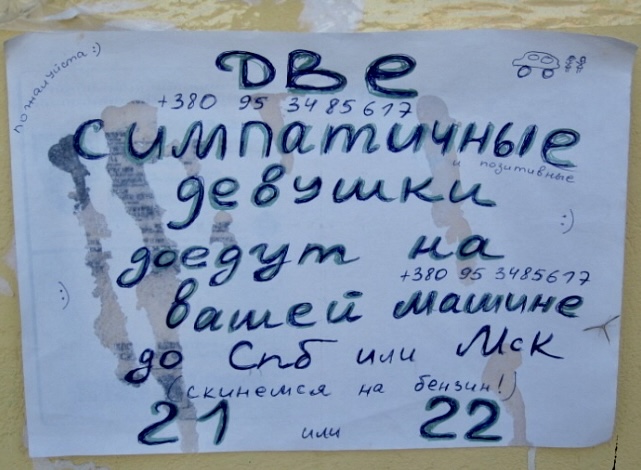 пожалуйста :)
Две
+380 95 3485617
симпатичные
и позитивные
девушки
:)
доедут на
+380 95 3485617
:)
вашей машине
до Спб или Мск
(скинемся на бензин!)
21 или 22